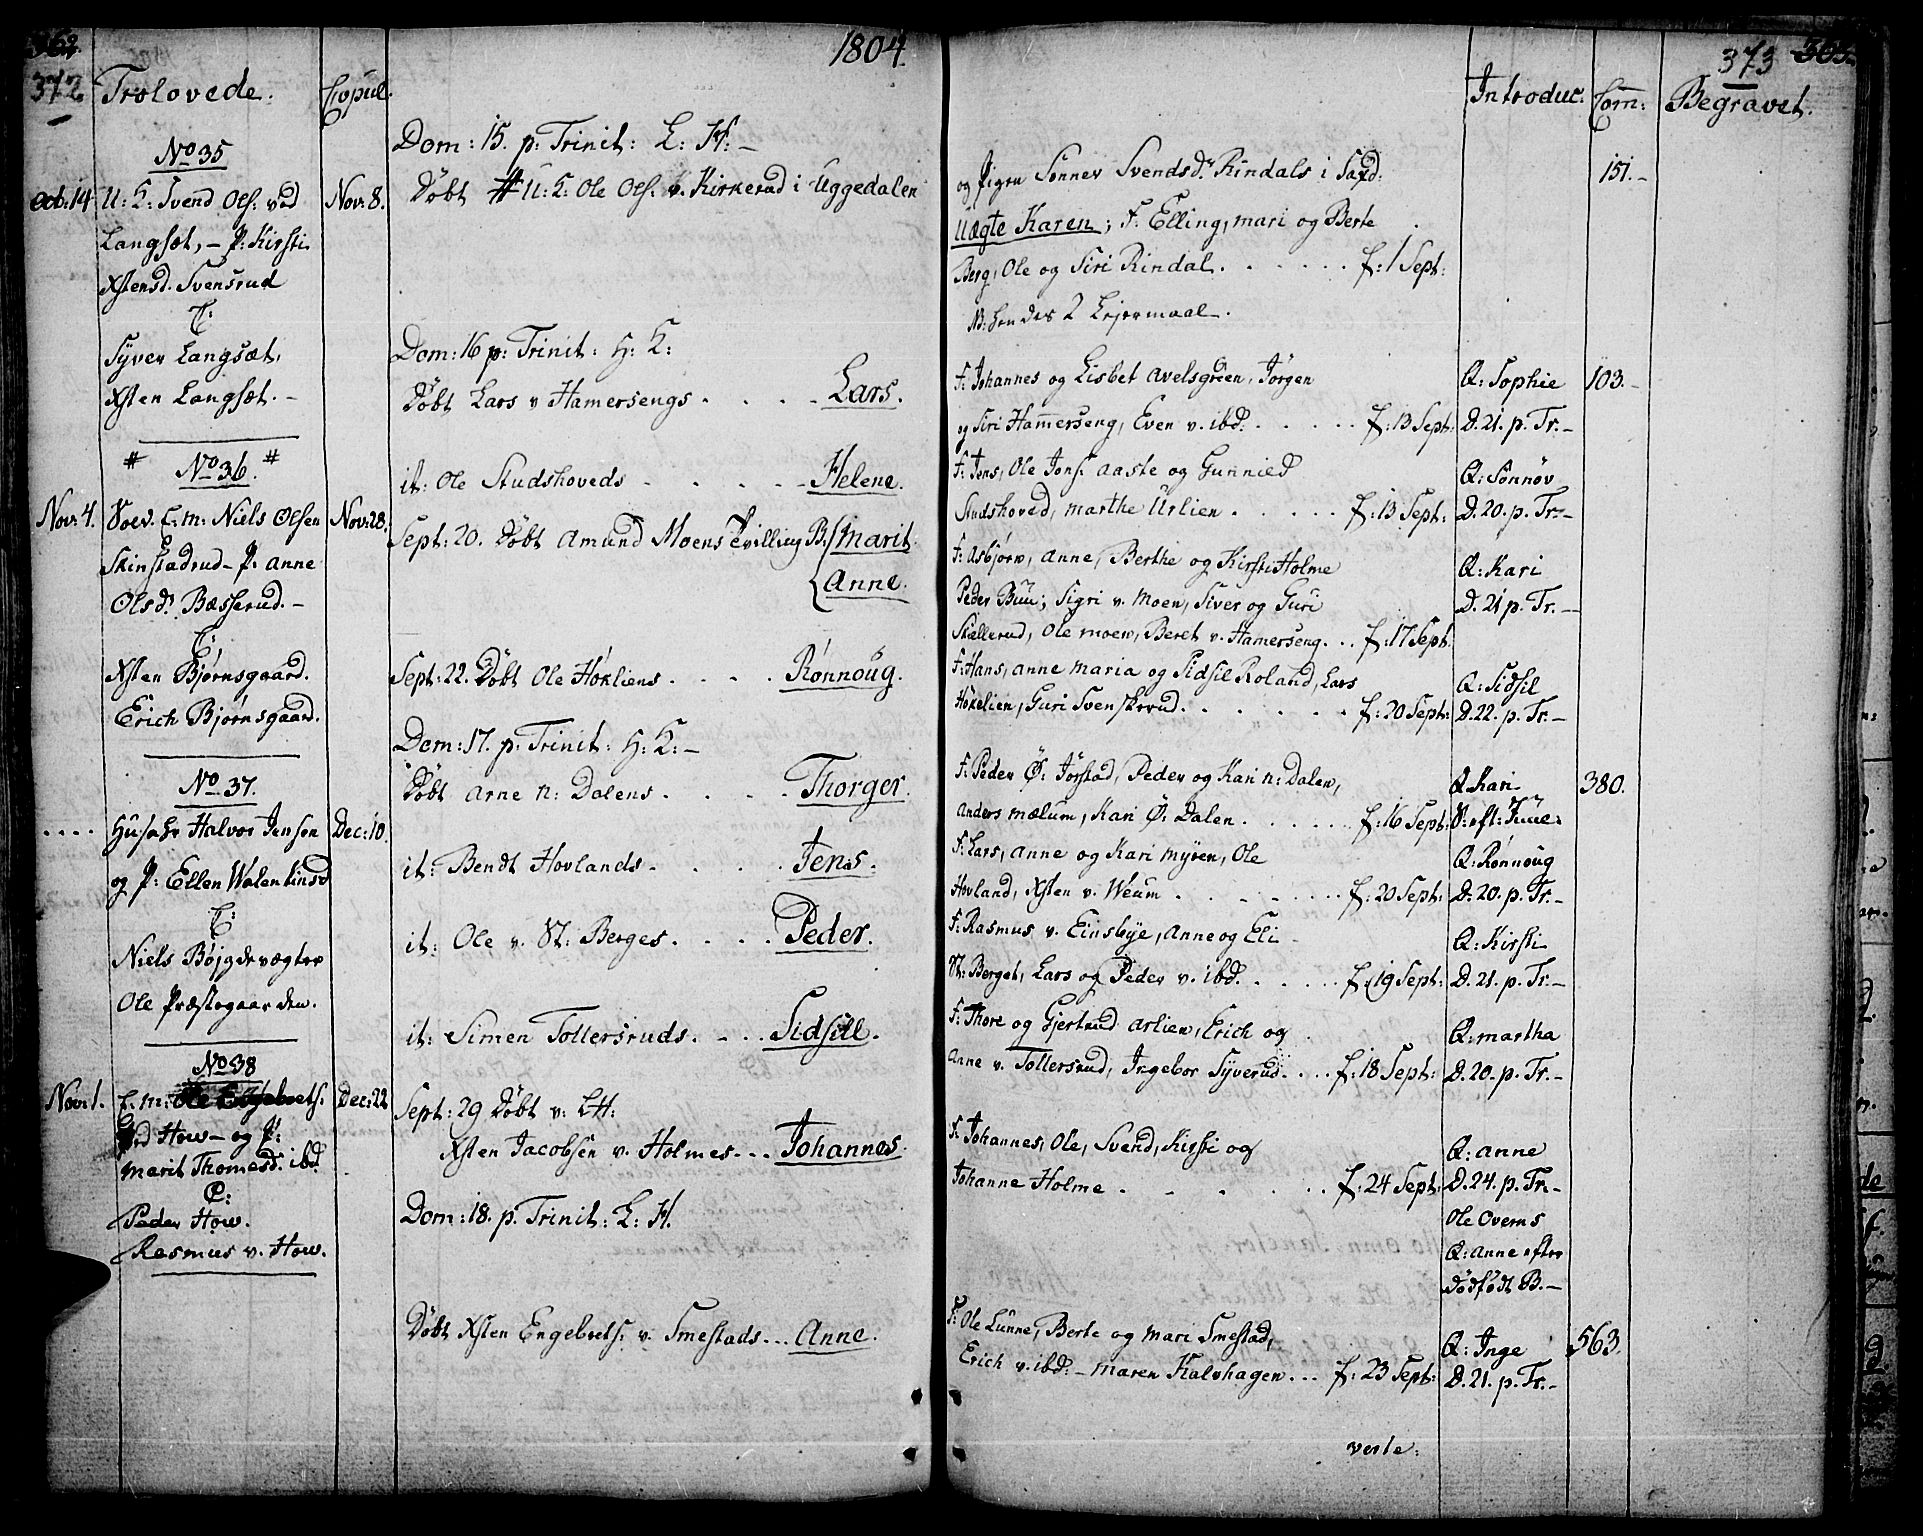 362.
372
1804.
Trolovede.
Copul.
No 35
Oct: 14 U: K: Svend Ols: ved Nov: 8.
Langsæt, – P: Kirsti
Xstensd. Svensrud
C:
Syver Langsæt.
Xsten Langsæt. –
# No 36. #
Nov: 4. E: m: Niels Olsen Nov: 28.
Skinstadrud – P: Anne
Olsd: Bæsserud. –
C:
Xsten Bjørnsgaard.
Erich Bjørnsgaard.
No 37.
.... Husahr Halvor Jensen Dec: 10.
og P: Ellen Walentinsd
C:
Niels Bøjgdevægter
Ole Præstegaarden.
No 38
Nov: 1. E: m: Ole Engebrets: Dec: 22
ved How – og P:
Marit Thomesd: ibd.
C:
Peder How.
Rasmus v. How.
Dom: 15. p. Trinit: L: H: –
Døbt # U: K: Ole Ols. v. Kirkerud i Uggedalen
Dom: 16 p: Trinit: H: K:
Døbt Lars v Hamersengs . . . . Lars.
it: Ole Studshoveds - . . . . Helene.
Sept: 20. Døbt Amund Moens Tvilling B. { Marit.
{ Anne.
Sept: 22. Døbt Ole Høkliens . . . . Rønnoug.
Dom: 17. p. Trinit: H: K: –
Døbt Arne N: Dalens . . . . Thorger.
it: Bendt Hovlands . . . . Jens.
it: Ole v. St: Berges . . . . Peder.
it: Simen Tollersruds . . . Sidsill.
Sept: 29 Døbt v: LH:
Xsten Jacobsen v. Holmes ... Johannes.
Dom: 18. p. Trinit: L: H.
Døbt Xsten Engebrets: v. Smestads ... Anne.
373 363.
Introduc: Com: Begravet.
og Pigen Sønnev Svendsd: Rindals i Faxd: 151. –
Uægte Karen; F: Elling, Mari og Berte
Berg, Ole og Siri Rindal . . . . . . f: 1 Sept:
NB: hendes 2 Lejermaal –.
F: Johannes og Lisbet Avelsgreen, Jørgen Q: Sophie 103. –
og Siri Hamerseng, Even v. ibd: . . . . . f: 13 Sept: D. 21. p. Tr. –
F: Jens, Ole Jens: Aaste og Gunnild Q: Sønnøv
Studshoved, Marthe Urlien . . . . . f: 13 Sept: D. 20. p. Tr: –
F: Asbjørn, Anne, Berthe og Kirsti Holme Q: Kari
Peder Buu; Sigri v. Moen, Siver og Guri D. 21 p. Tr. –
Skellerud, Ole Moen, Beret v. Hamerseng . . f: 17 Sept.
F: Hans, Anne Maria og Sidsil Roland, Lars Q: Sidsil
Høkelien, Guri Svenskrud . . . . . . f: 20 Sept: D. 22. p. Tr. –
F: Peder Ø: Jørstad, Peder og Kari N: Dalen, Q Kari 380.
Anders Mælum, Kari Ø: Dalen . . . . . f: 16 Sept: S: eft: Juul:
F: Lars, Anne og Kari Myren, Ole Q: Rønnoug
Hovland, Xsten v. Weum . . . . . . f: 20 Sept: D. 20. p. Tr. –
F: Rasmus v. Einsbye, Anne og Eli Q: Kirsti
St: Berget, Lars og Peder v. ibd. . . . . f: 19 Sept: D. 21. p. Tr. –
F: Thore og Gjertrud Arlien, Erich og Q: Martha
Anne v. Tollersrud, Ingebor Syverud . . . f: 18 Sept: D. 20. p. Tr. –
F: Johannes, Ole, Svend, Kirsti og Q: Anne
Johanne Holme . . . . . . f: 24 Sept: D. 24. p. Tr. –
Ole Overns
Q: Anne efter
dødfødt B. –
F: Ole Lunne, Berte og Mari Smestad, Q: Inge 563.
Erich v. ibd: – Maren Kalvhagen ... f: 23 Sept: D. 21. p. Tr. –
verte: